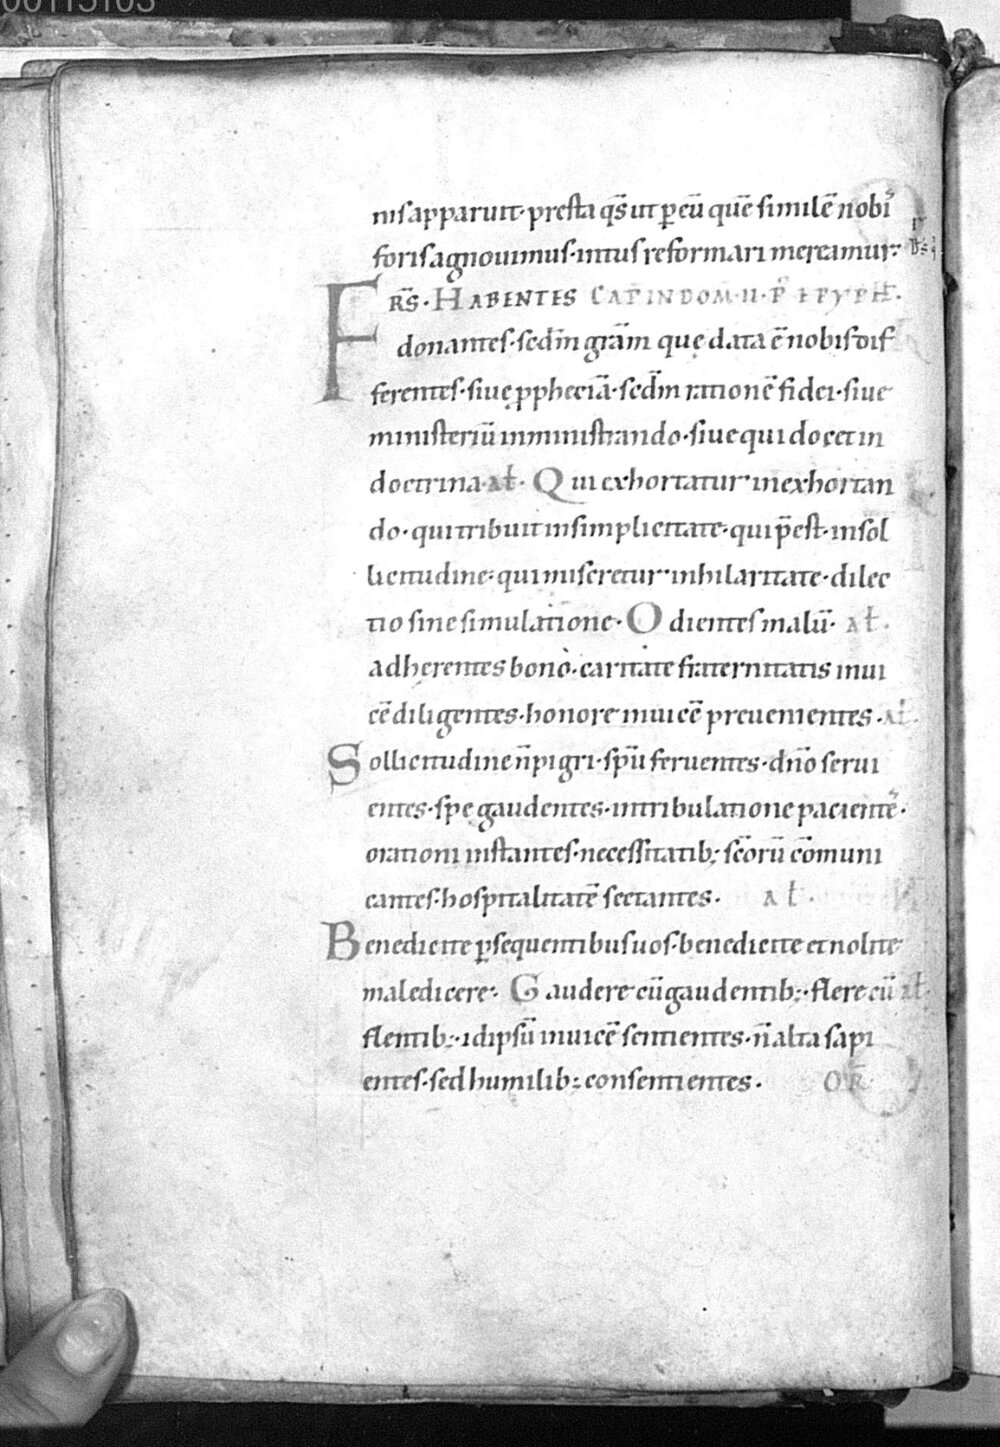 nis apparuit· presta qs̄ ut p̱ eū quē similē nobis
foris agnouimus· intus reformari mereamur·
FRS̄· HABENTES CAP̄ IN DOM· II· P̄ EPYPH̄·
donantes· sed̄m grām̄ que data ē nobis dif
ferentes· siue ꝓpheciā· sed̄m rationē fidei· siue
ministeriū inministrando· siue qui docet in
doctrina· aƚ· Qui exhortatur in exhortan
do· qui tribuit in simplicitate· qui p̄est· in sol
licitudine· qui miseretur in hilaritate· dilec
tio sine simulatione· Odientes malū· aƚ·
adherentes bono· caritate fraternitatis inui
cē diligentes· honore inuicē preuenientes· aƚ·
Sollicitudine n̄ pigri· sp̄u feruentes· dn̄o serui
entes· spe gaudentes· in tribulatione pacientes·
orationi instantes· necessitatib; sc̄orū cōmuni
cantes· hospitalitatē sectantes· aƚ·
Benedicite p̱sequentibus uos· benedicite et nolite
maledicere· Gaudere cū gaudentib;· flere cū aƚ·
flentib;· idipsū inuicē sentientes· n̄ alta sapi
entes· sed humilib; consentientes· OR̄